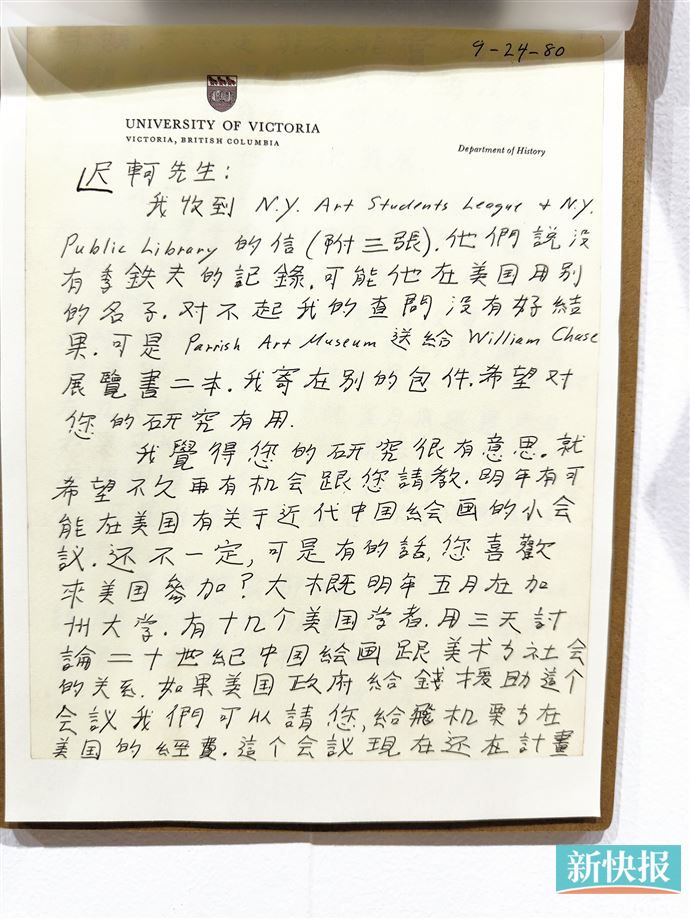 9-24-80
UNIVERSITY OF VICTORIA
VICTORIA, BRITISH COLUMBIA
Department of History
迟軻先生：
我收到 N.Y. Art Students League & N.Y.
Public Library 的信(附三張).他們說没
有李鉄夫的記錄.可能他在美国用别
的名子.对不起我的查問没有好結
果.可是 Parrish Art Museum 送給 William Chase
展覽書二本.我寄在别的包件.希望对
您的研究有用.
我覺得您的研究很有意思.就
希望不久再有机会跟您請教.明年有可
能在美国有关于近代中国绘画的小会
议.还不一定,可是有的話,您喜歡
來美国參加?大概明年五月在加
州大学.有十几个美国学者.用三天討
論二十世紀中国绘画跟美术与社会
的关系.如果美国政府給錢援助這个
会议我們可以請您,給飛机票与在
美国的經費.這个会议現在还在計畫
新快报